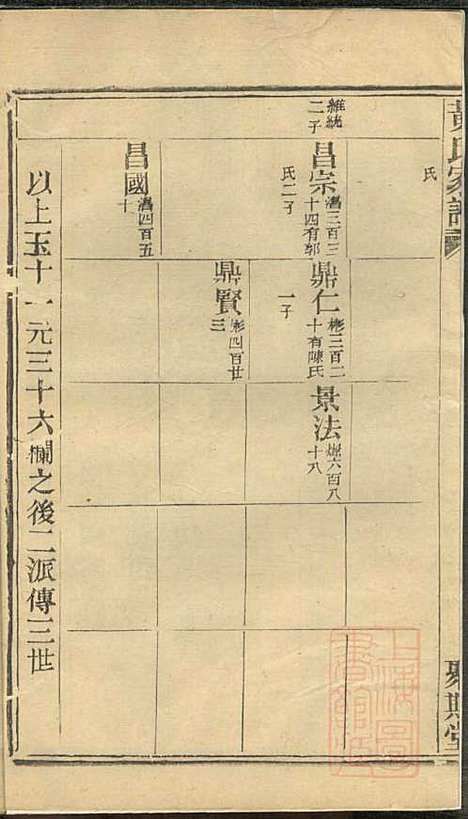 黃氏家譜
氏
維統
二子
昌宗 濕三百三
十四有郭
氏二子
鼎仁 彬三百二
十有陳氏
一子
景法 六百八
十八
鼎賢 彬四百廿
三
昌國 濕四百五
十
以上玉十一元三十六欄之後二派傳三世
聚斯堂
上海圖書館藏